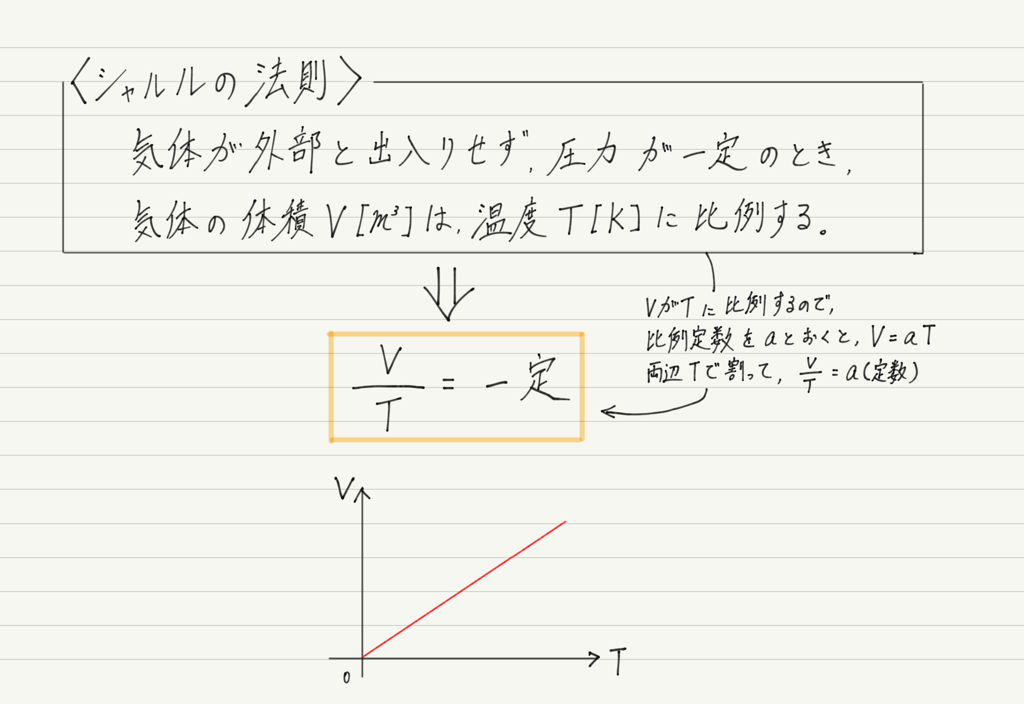 〈シャルルの法則〉
気体が外部と出入りせず、圧力が一定のとき、
気体の体積V[m³]は、温度T[K]に比例する。
VがTに比例するので、
比例定数をaとおくと、V=aT
両辺Tで割って、V/T=a(定数)
V/T=一定
V
T
0